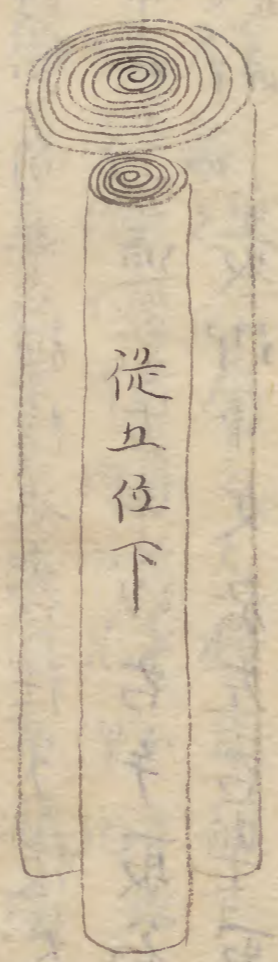 従五位下